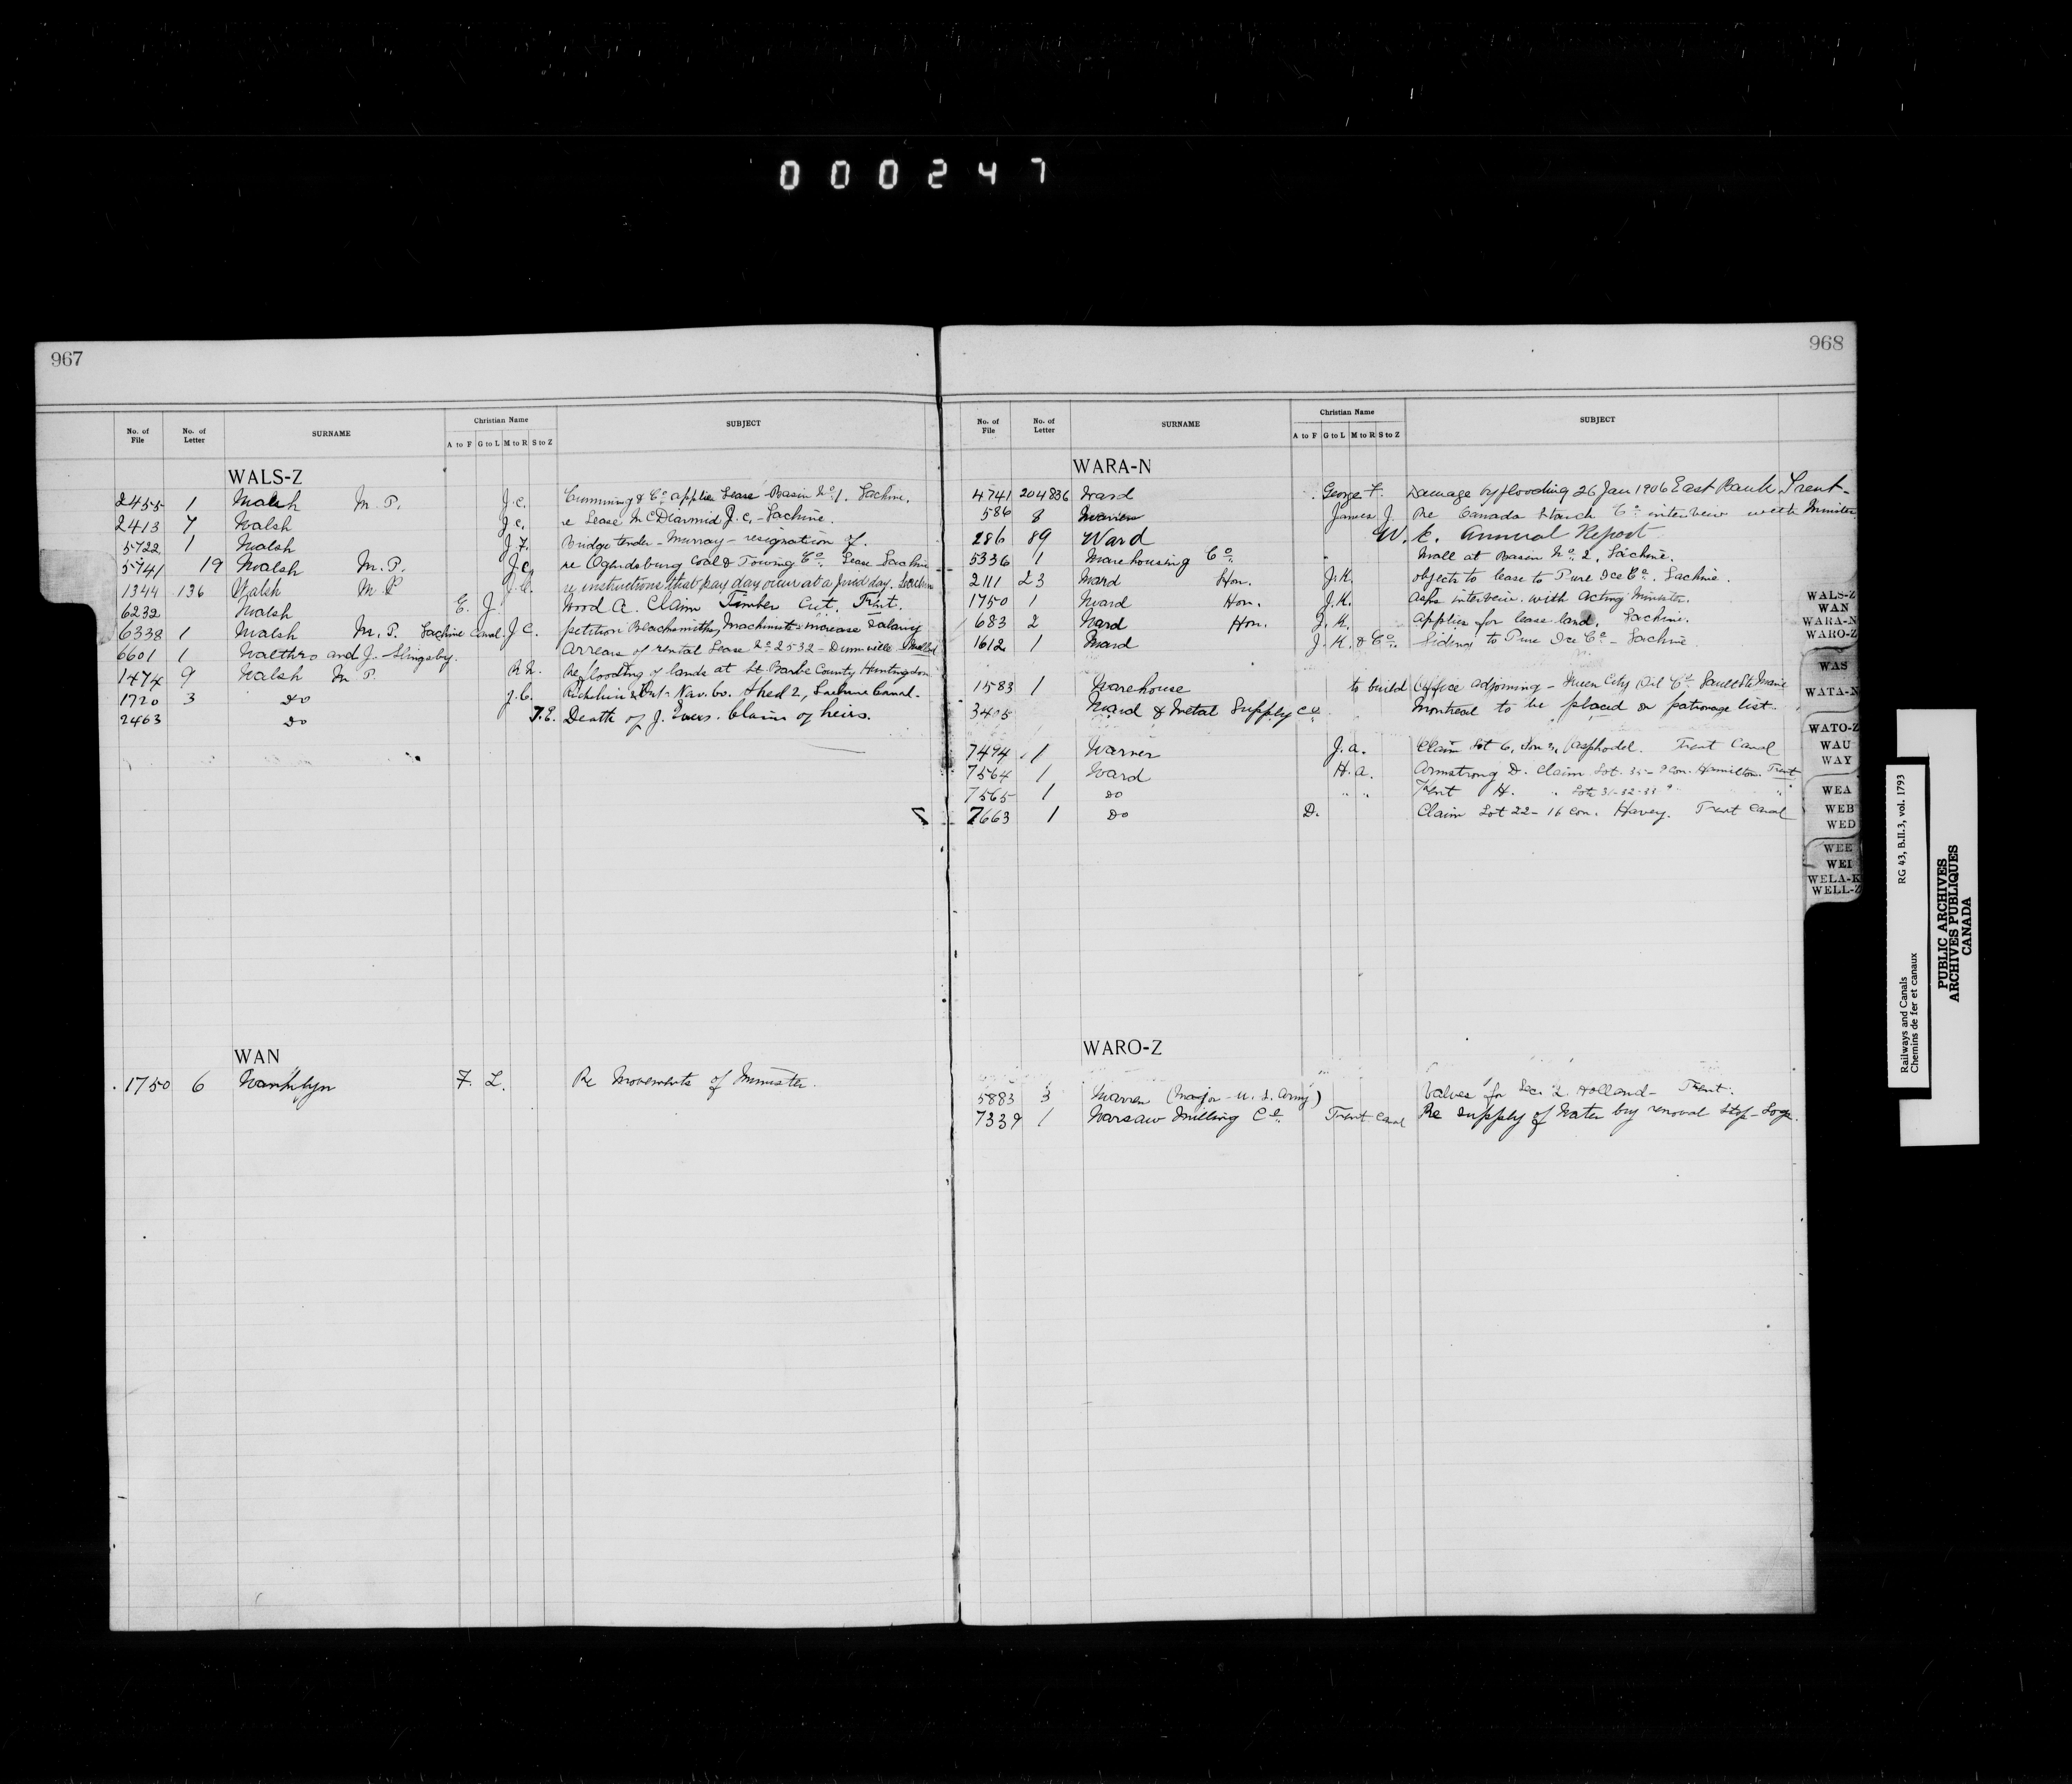 000247
967
No. of File No. of Letter SURNAME Christian Name A to F G to L M to R S to Z SUBJECT
WALS-Z
2455 1 Walsh M.P. J.C. Cumming & Co applies Lease Basin No 1. Lachine.
2413 7 Walsh J.C. re Lease McDiarmid J.C. - Lachine.
5722 1 Walsh J.F. Bridge tender - Murray - resignation of.
5741 19 Walsh M.P. J.C. re Ogdensburg Coal & Towing Co. Lease Lachine
1344 136 Walsh M.P J.C. re instructions that pay day occur at a mid day. Lachine
6232 Walsh E. J. Wood A. Claim Timber Cut. Trent.
6338 1 Walsh M.P. Lachine Canal. J C. petition Blacksmiths, Machinists increase Salary
6601 1 Walthro and J. Slingsby. Arrears of rental Lease No 2532 - Dunnville Welland
1474 9 Walsh M P. R.N. Re flooding of lands at St. Barbe County, Huntingdon
1720 3 Do J.C. Richelieu & Ont. Nav. Co. Shed 2, Lachine Canal.
2463 Do T.E. Death of J. Evers. Claim of heirs.
WAN
1750 6 Wanklyn F. L. Re Movements of Minister.
968
No. of File No. of Letter SURNAME Christian Name A to F G to L M to R S to Z SUBJECT
WARA-N
4741 204836 Ward George F. Damage by flooding 26 Jan 1906 East Bank Trent-
586 8 Warren James J. Re Canada Starch Co interview with Minister.
286 89 Ward W. E. Annual Report
5336 1 Warehousing Co. Wall at Basin No. 2, Lachine.
2111 23 Ward Hon. J.K. objects to lease to Pure Ice Co. Lachine.
1750 1 Ward Hon. J.K. asks interview with Acting Minister.
683 2 Ward Hon. J.K. Applies for lease land, Lachine.
1612 1 Ward J.K. & Co. Siding to Pure Ice Co - Lachine.
1583 1 Warehouse to build Office adjoining - Queen City Oil Co Sault Ste Marie
3405 Ward & Metal Supply Co Montreal to be placed on patronage list.
7494 1 Warner J.A. Claim Lot 6, Con 3, Asphodel. Trent Canal
7564 1 Ward H.A. Armstrong D. Claim Lot 35 - 9 Con. Hamilton. Trent
7565 1 Do " " Kent H. " Lots 31-32-33 9 " "
7663 1 Do D. Claim Lot 22 - 16 Con. Harvey. Trent Canal
WARO-Z
5883 3 Warren (Major - U.S. Army) Valves for Sec. 2 Holland - Trent.
7339 1 Warsaw Milling Co. Trent Canal Re supply of Water by removal Stop-Logs.
WALS-Z
WAN
WARA-N
WARO-Z
WAS
WATA-N
WATO-Z
WAU
WAY
WEA
WEB
WED
WEE
WEI
WELA-K
WELL-Z
Railways and Canals RG 43, B.II.3, vol. 1793
Chemins de fer et canaux
PUBLIC ARCHIVES
ARCHIVES PUBLIQUES
CANADA